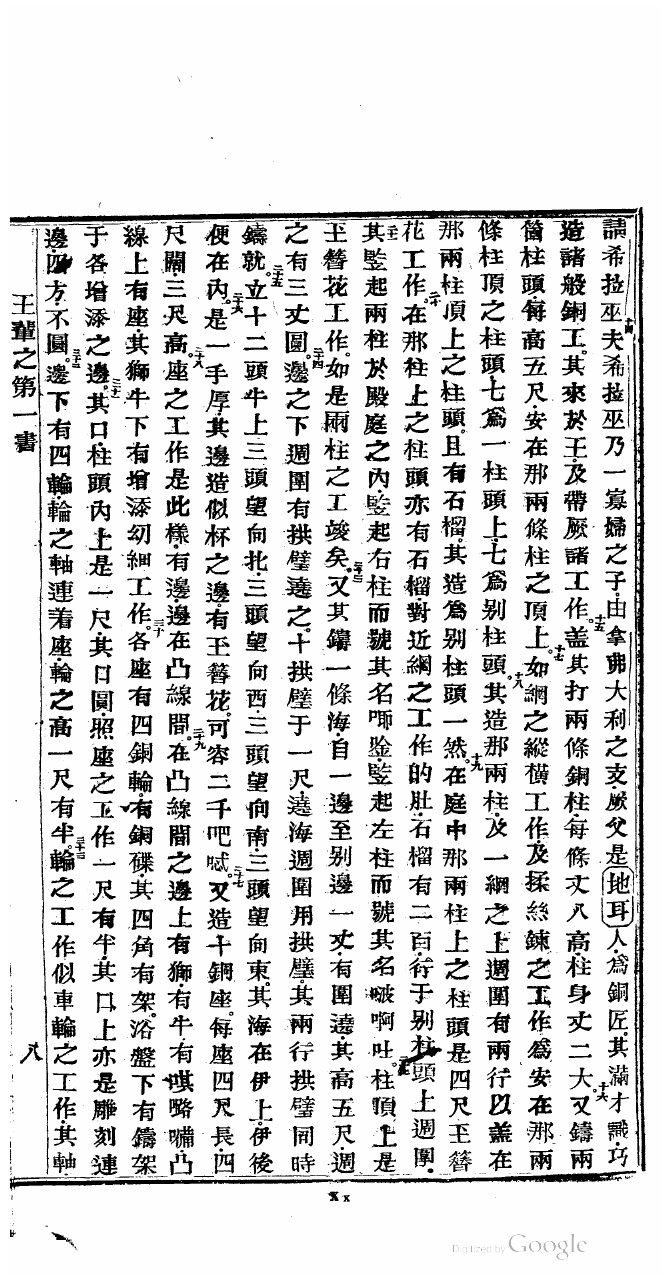 請希拉巫夫希拉巫乃一寡婦之子由拿弗大利之支厥父是地耳人為銅匠其滿才識巧
造諸般銅工其來於王及帶厥諸工作蓋其打兩條銅柱每條丈八高柱身丈二大又鑄兩
箇柱頭每高五尺安在那兩條柱之頂上如網之縱橫工作及揉絲鍊之工作為安在那兩
條柱頂之柱頭七為一柱頭上七為別柱頭其造那兩柱及一網之上週圍有兩行以蓋在
那兩柱頂上之柱頭且有石榴其造為別柱頭一然在庭中那兩柱上之柱頭是四尺玉簪
花工作在那柱上之柱頭亦有石榴對近網之工作的肚石榴有二百行于別柱頭上週圍
其竪起兩柱於殿庭之內竪起右柱而號其名唧竪起左柱而號其名啵啊吐柱頂上是
玉簪花工作如是兩柱之工竣矣又其鑄一條海自一邊至別邊一丈有圍遶其高五尺週
之有三丈圓邊之下週圍有拱璧遶之十拱璧于一尺遶海週圍用拱璧其兩行拱璧同時
鑄就立十二頭牛上三頭望向北三頭望向西三頭望向南三頭望向東其海在伊上伊後
便在內是一手厚其邊造似杯之邊有玉簪花可容二千吧又造十銅座每座四尺長四
尺闊三尺高座之工作是此樣有邊邊在凸線間在凸線間之邊上有獅有牛有凸
線上有座其獅牛下有增添幼細工作各座有四銅輪有銅磼其四角有架浴盤下有鑄架
于各增添之邊其口柱頭內上是一尺其口圓照座之工作一尺有半其口上亦是雕刻連
邊四方不圓邊下有四輪輪之軸連着座輪之高一尺有半輪之工作似車輪之工作其軸
王輩之第一書
八
Xx
Digitized by Google